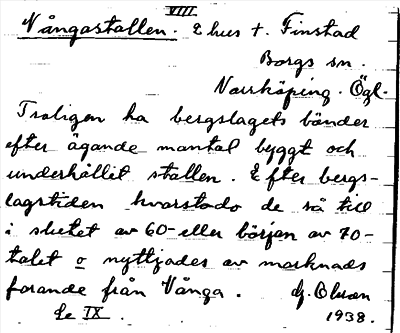 VIII
Vångastallen. 2 hus t. Finstad
Borgs sn.
Norrköping. Ögl.
Troligen ha bergslagets bönder
efter ägande mantal byggt och
underhållit stallen. Efter bergs-
lagstiden kvarstodo de så till
i slutet av 60- eller början av 70-
talet o nyttjades av marknads
farande från Vånga. G. Olsson
Se IX. 1938.